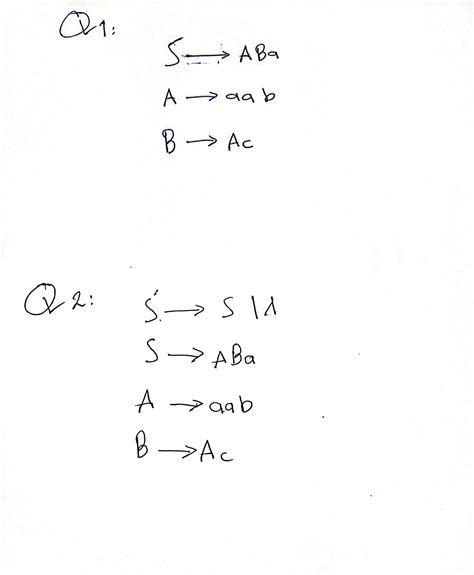 Q1:
S → ABa
A → aab
B → Ac
Q2:
S' → S | λ
S → ABa
A → aab
B → Ac